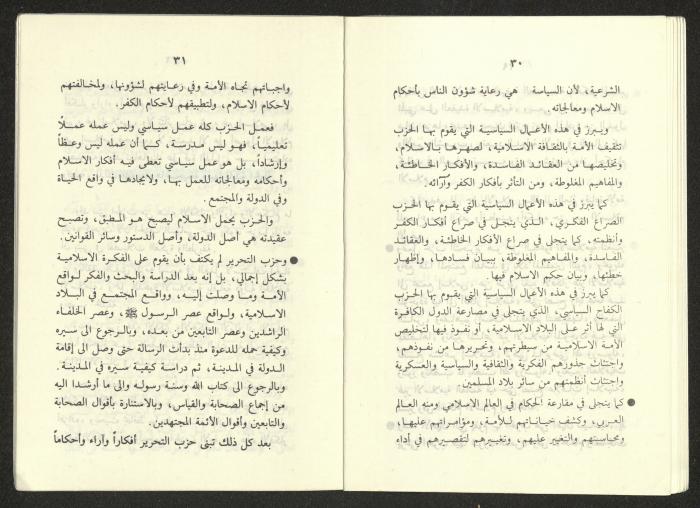 ٣٠
الشرعية، لأن السياسة هي رعاية شؤون الناس بأحكام
الاسلام ومعالجاته.
ويبرز في هذه الأعمال السياسية التي يقوم بها الحزب
تثقيف الأمة بالثقافة الاسلامية، لصهرها بالاسلام،
وتخليصها من العقائد الفاسدة، والأفكار الخاطئة،
والمفاهيم المغلوطة، ومن التأثر بأفكار الكفر وآرائه.
كما يبرز في هذه الأعمال السياسية التي يقوم بها الحزب
الصراع الفكري، الذي يتجلى في صراع أفكار الكفر
وأنظمته، كما يتجلى في صراع الأفكار الخاطئة، والعقائد
الفاسدة، والمفاهيم المغلوطة، ببيان فسادها، وإظهار
خطئها، وبيان حكم الاسلام فيها.
كما يبرز في هذه الأعمال السياسية التي يقوم بها الحزب
الكفاح السياسي، الذي يتجلى في مصارعة الدول الكافرة
التي لها أثر على البلاد الاسلامية، أو نفوذ فيها لتخليص
الأمة الاسلامية من سيطرتهم، وتحريرها من نفوذهم،
واجتثاث جذورهم الفكرية والثقافية والسياسية والعسكرية
واجتثاث أنظمتهم من سائر بلاد المسلمين.
كما يتجلى في مقارعة الحكام في العالم الاسلامي ومنه العالم
العربي، وكشف خياناتهم للأمة، ومؤامراتهم عليها،
ومحاسبتهم والتغيير عليهم، وتغييرهم لتقصيرهم في أداء
٣١
واجباتهم تجاه الأمة وفي رعايتهم لشؤونها، ولمخالفتهم
لأحكام الاسلام، ولتطبيقهم لأحكام الكفر.
فعمل الحزب كله عمل سياسي وليس عمله عملاً
تعليمياً، فهو ليس مدرسة، كما أن عمله ليس وعظاً
وإرشاداً، بل هو عمل سياسي تعطى فيه أفكار الاسلام
وأحكامه ومعالجاته للعمل بها، ولايجادها في واقع الحياة
وفي الدولة والمجتمع.
والحزب يحمل الاسلام ليصبح هو المطبق، وتصبح
عقيدته هي أصل الدولة، وأصل الدستور وسائر القوانين.
وحزب التحرير لم يكتف بأن يقوم على الفكرة الاسلامية
بشكل إجمالي، بل إنه بعد الدراسة والبحث والفكر لواقع
الأمة وما وصلت إليه، وواقع المجتمع في البلاد
الاسلامية، ولواقع عصر الرسول ﷺ، وعصر الخلفاء
الراشدين وعصر التابعين من بعده، وبالرجوع الى سيره
وكيفية حمله للدعوة منذ بدأت الرسالة حتى وصل الى إقامة
الدولة في المدينة، ثم دراسة كيفية سيره في المدينة.
وبالرجوع الى كتاب الله وسنة رسوله والى ما أرشدا اليه
من إجماع الصحابة والقياس، وبالاستنارة بأقوال الصحابة
والتابعين وأقوال الأئمة المجتهدين.
بعد كل ذلك تبنى حزب التحرير أفكاراً وآراء وأحكاماً